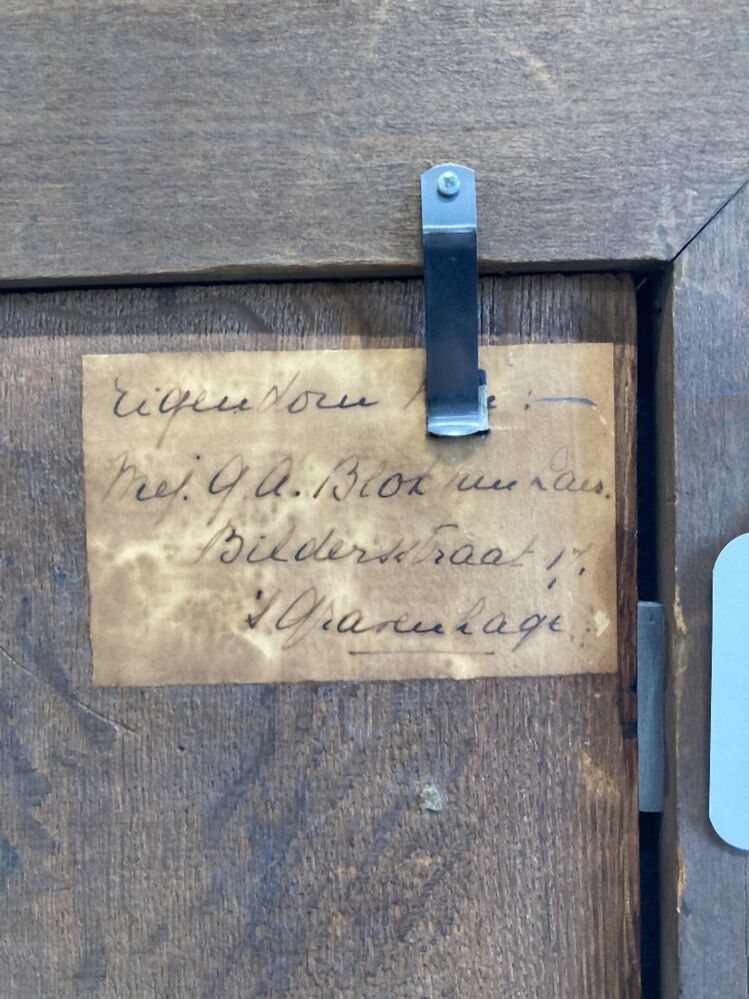 Eigendom van :—
Mej. G. A. Blok
Bilderstraat 17.
's Gravenhage.